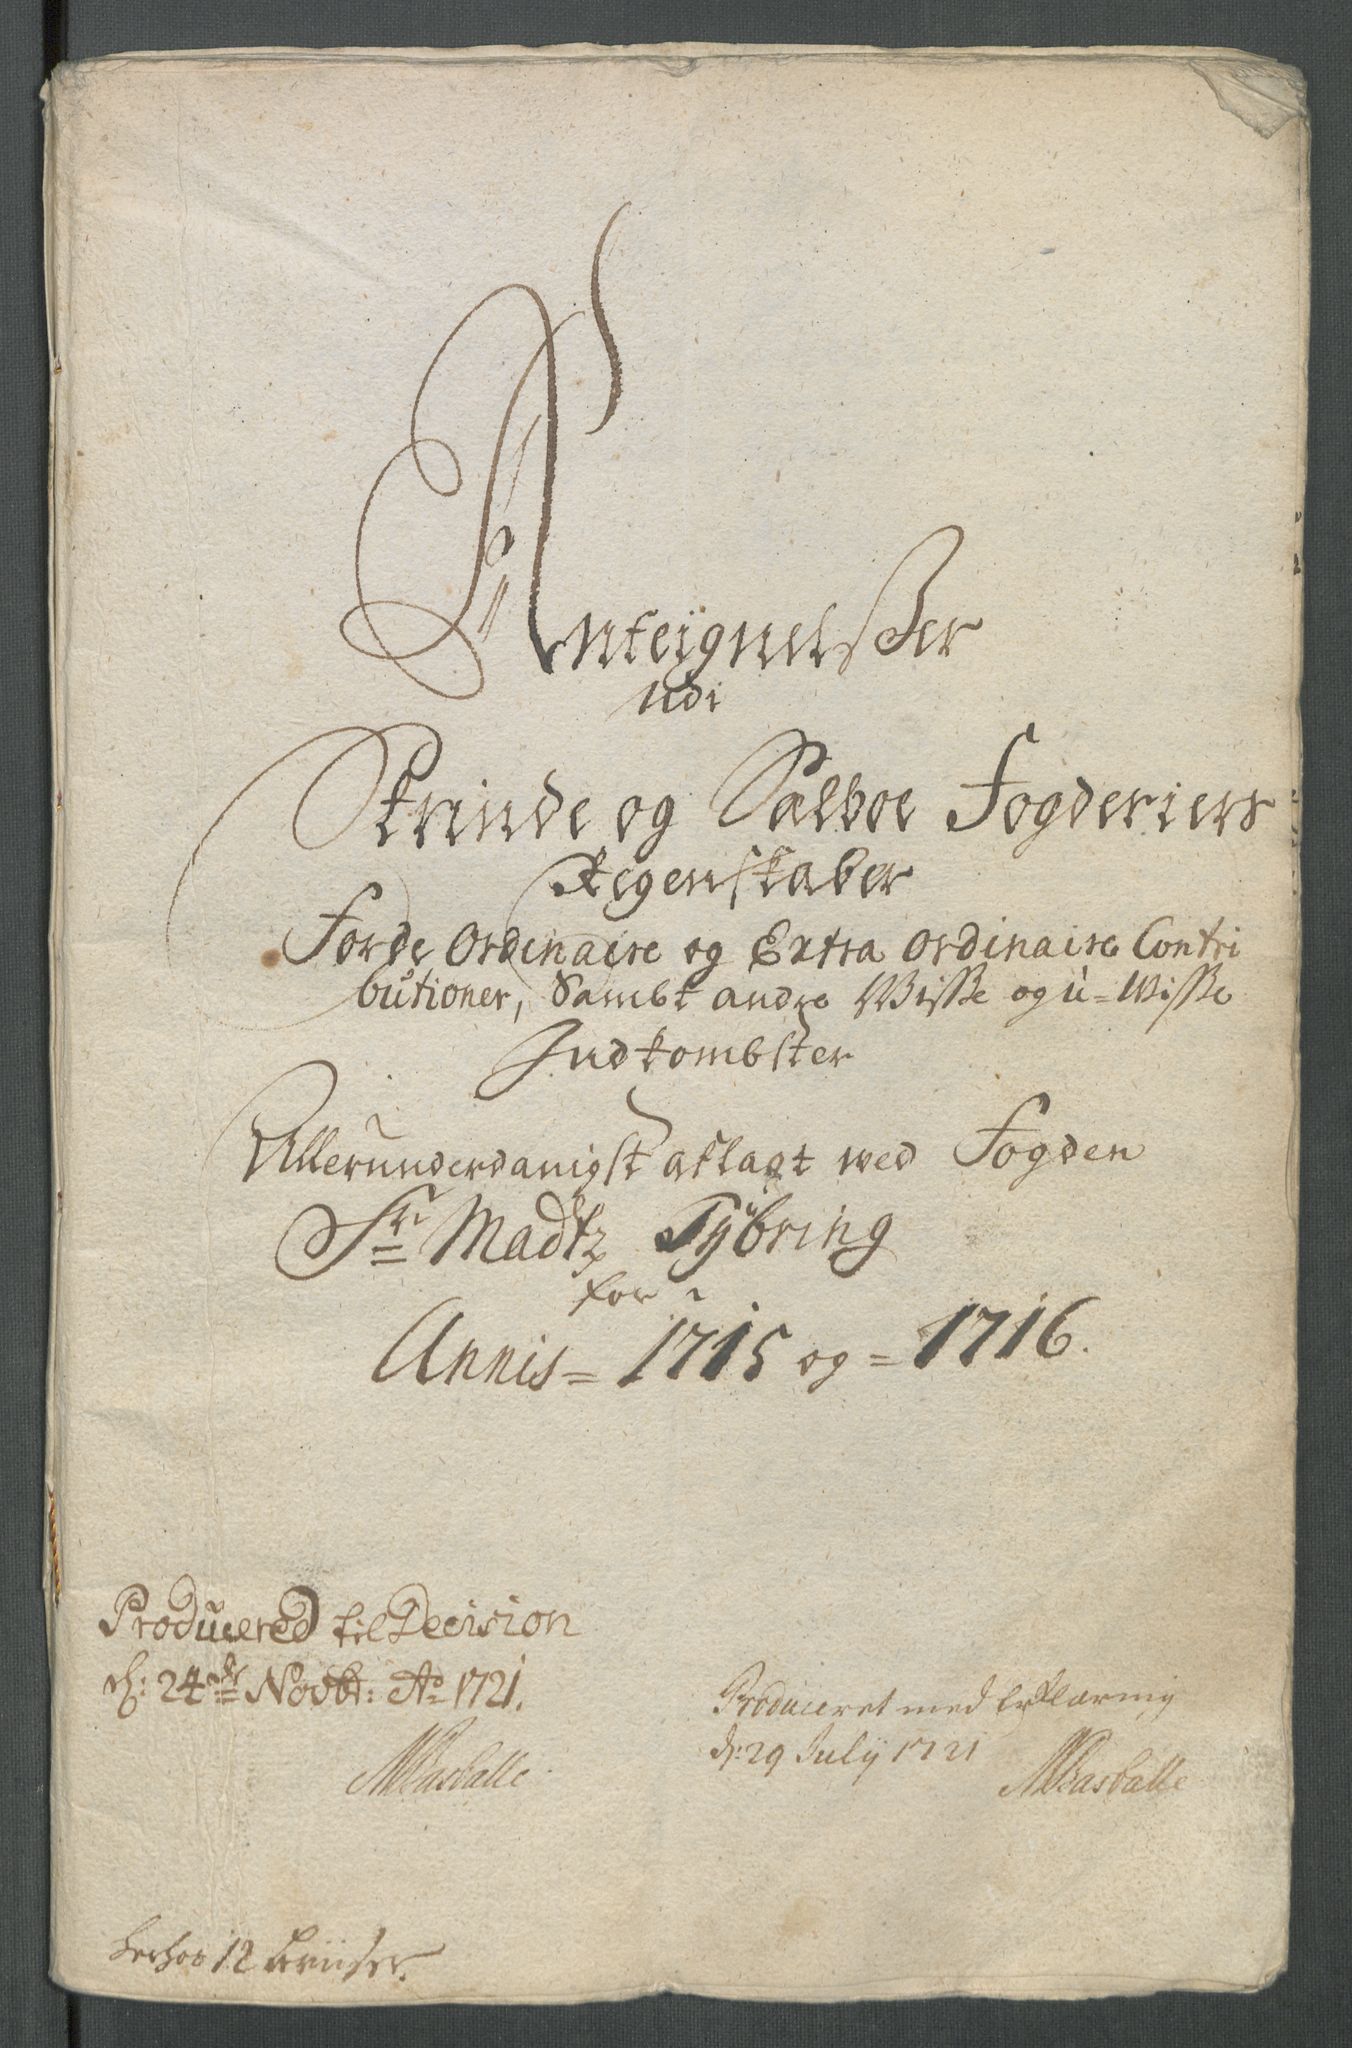 Anteignelßer
udi
Strinde og Sælboe Fogderiers
Regenskaber
For de Ordinaire og Extra Ordinaire Contri
butioner, Sambt andre Wisße og u=Wisße
Indkombster
Allerunderdanigst aflagt wed Fogden
Sr Madtz Tÿbring
for
Annis= 1715 og= 1716.
Producered til Decision
d: 24de Novbr: Ao 1721.
Produceret med Erklaring
d: 29 Julÿ 1721
herhos 12